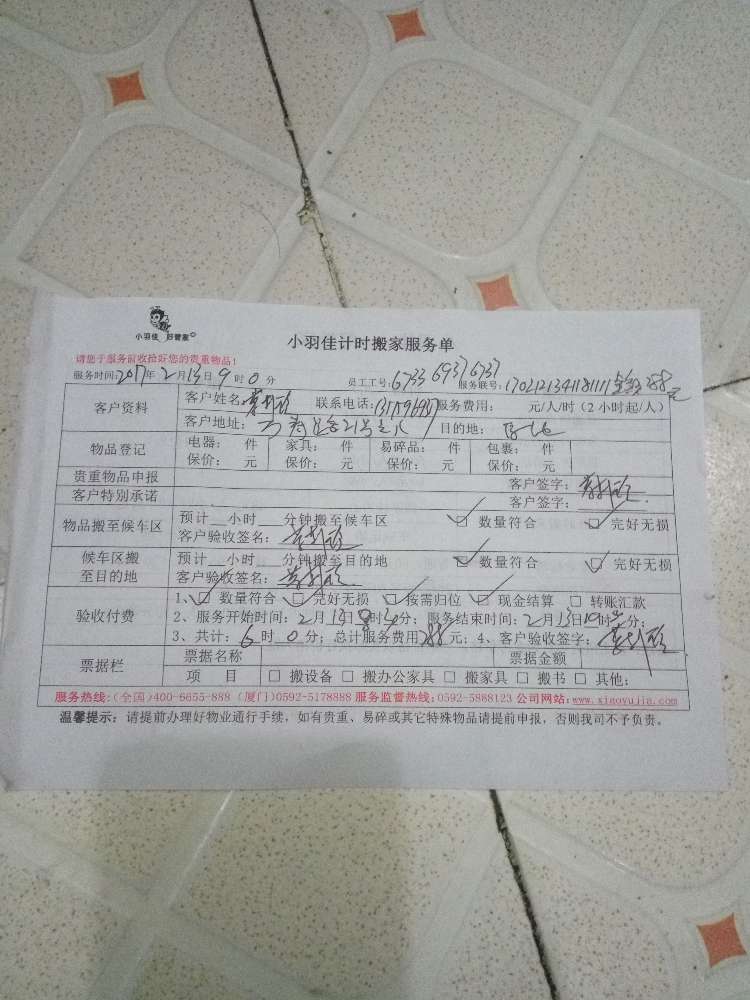 小羽佳 好管家
小羽佳计时搬家服务单
请您于服务前收拾好您的贵重物品！
服务时间：2017年2月13日9时0分 员工工号：6733 6937 6737 服务联号：1702121341181111 288元
客户资料 客户姓名： 联系电话： 服务费用： 元/人/时（2小时起/人）
客户地址： 万寿路21号之八 目的地：
物品登记 电器： 件 家具： 件 易碎品： 件 包裹： 件
保价： 元 保价： 元 保价： 元 保价： 元
贵重物品申报 客户签字：
客户特别承诺 客户签字：
物品搬至候车区 预计__小时___分钟搬至候车区 ☑ 数量符合 ☑ 完好无损
客户验收签名：
候车区搬至目的地 预计__小时___分钟搬至目的地 ☑ 数量符合 ☑ 完好无损
客户验收签名：
验收付费 1、☑ 数量符合 ☑ 完好无损 ☑ 按需归位 ☑ 现金结算 □ 转账汇款
2、服务开始时间：2月13日8时 分；服务结束时间：2月13日 时 分；
3、共计：6时0分；总计服务费用288元；4、客户验收签字：
票据栏 票据名称 票据金额
项 目 □ 搬设备 □ 搬办公家具 □ 搬家具 □ 搬书 □ 其他：
服务热线：（全国）400-6655-888（厦门）0592-5178888 服务监督热线：0592-5888123 公司网站：www.xiaoyujia.com
温馨提示：请提前办理好物业通行手续，如有贵重、易碎或其它特殊物品请提前申报，否则我司不予负责。